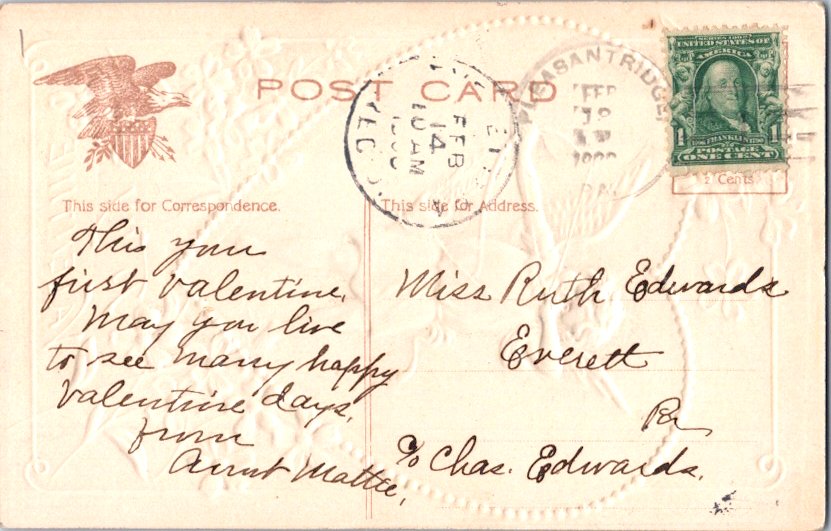 POST CARD
PLEASANTRIDGE,
FEB
14
10 AM
REC'D.
SERIES 1902
UNITED STATES OF
AMERICA
1 FRANKLIN 1
POSTAGE
ONE CENT
2 Cents
This side for Correspondence.
This side for Address.
This your
first Valentine.
May you live
to see many happy
Valentine days.
from
Aunt Mattie.
Miss Ruth Edwards
Everett
Pa
c/o Chas. Edwards.